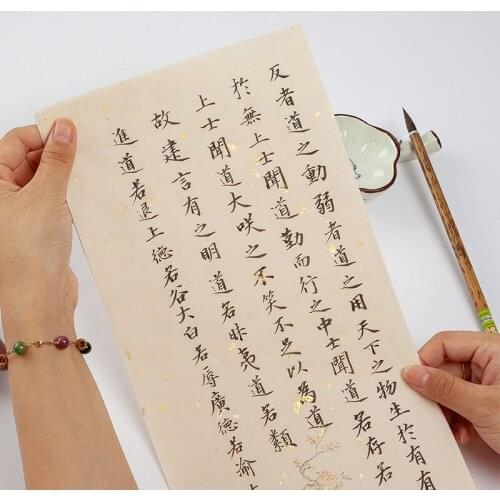 反者道之動弱者道之用天下之物生於有有
於無上士聞道勤而行之中士聞道若存若
上士聞道大咲之不笑不足以為道
故建言有之明道若昧夷道若類
進道若退上德若谷大白若辱廣德若渝